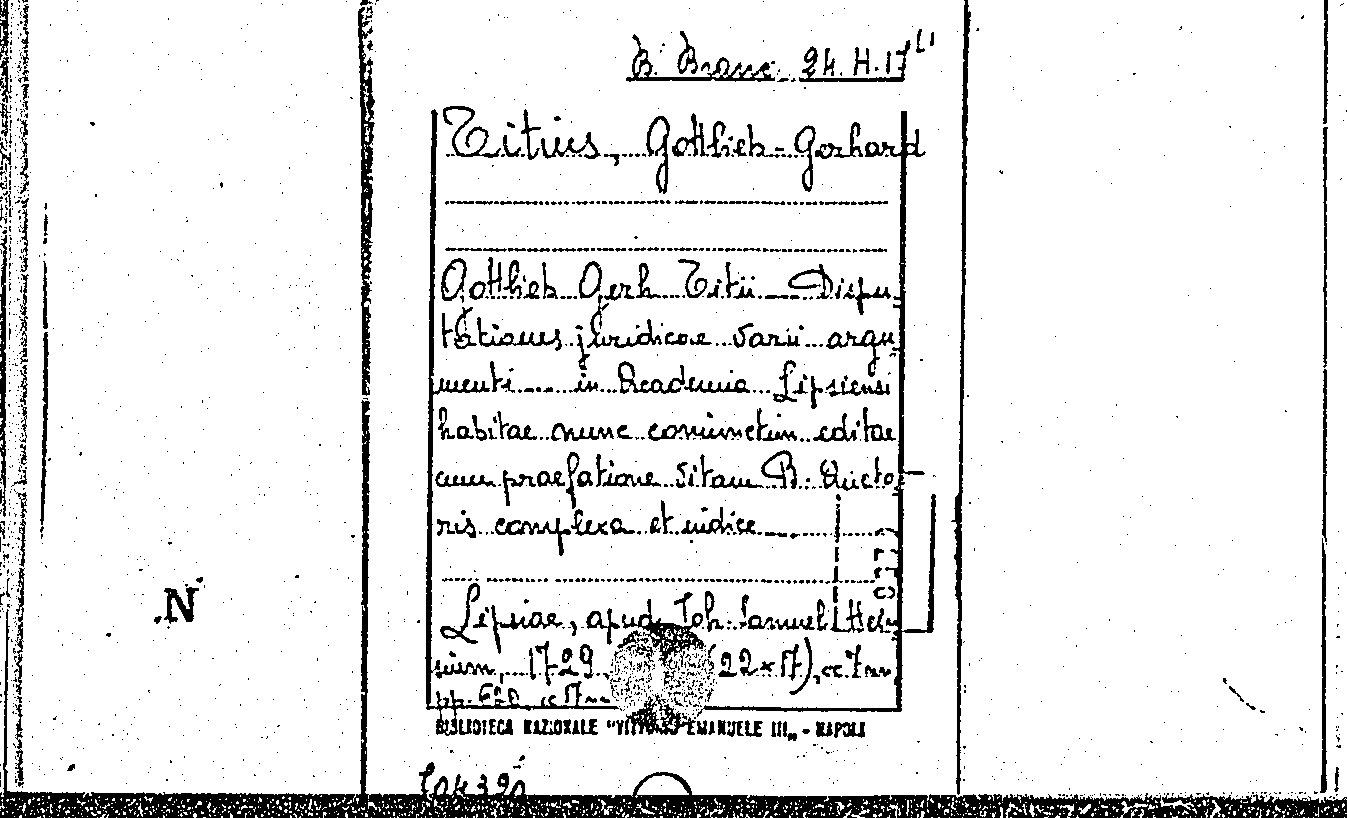 B. Branc. 24. H. 17
Titius, Gottlieb-Gerhard
Gottlieb Gerh Titii ... Dispu
tationes juridicae varii argu
menti ... in Academia Lipsiensi
habitae nunc coniunctim editae
cum praefatione vitam B. Aucto
ris complexa et indice ...
Lipsiae, apud Joh. Samuel Hein
sium, 1729 (22x17), cc 7 nn,
pp.
BIBLIOTECA NAZIONALE "VITTORIO EMANUELE III„ - NAPOLI
N